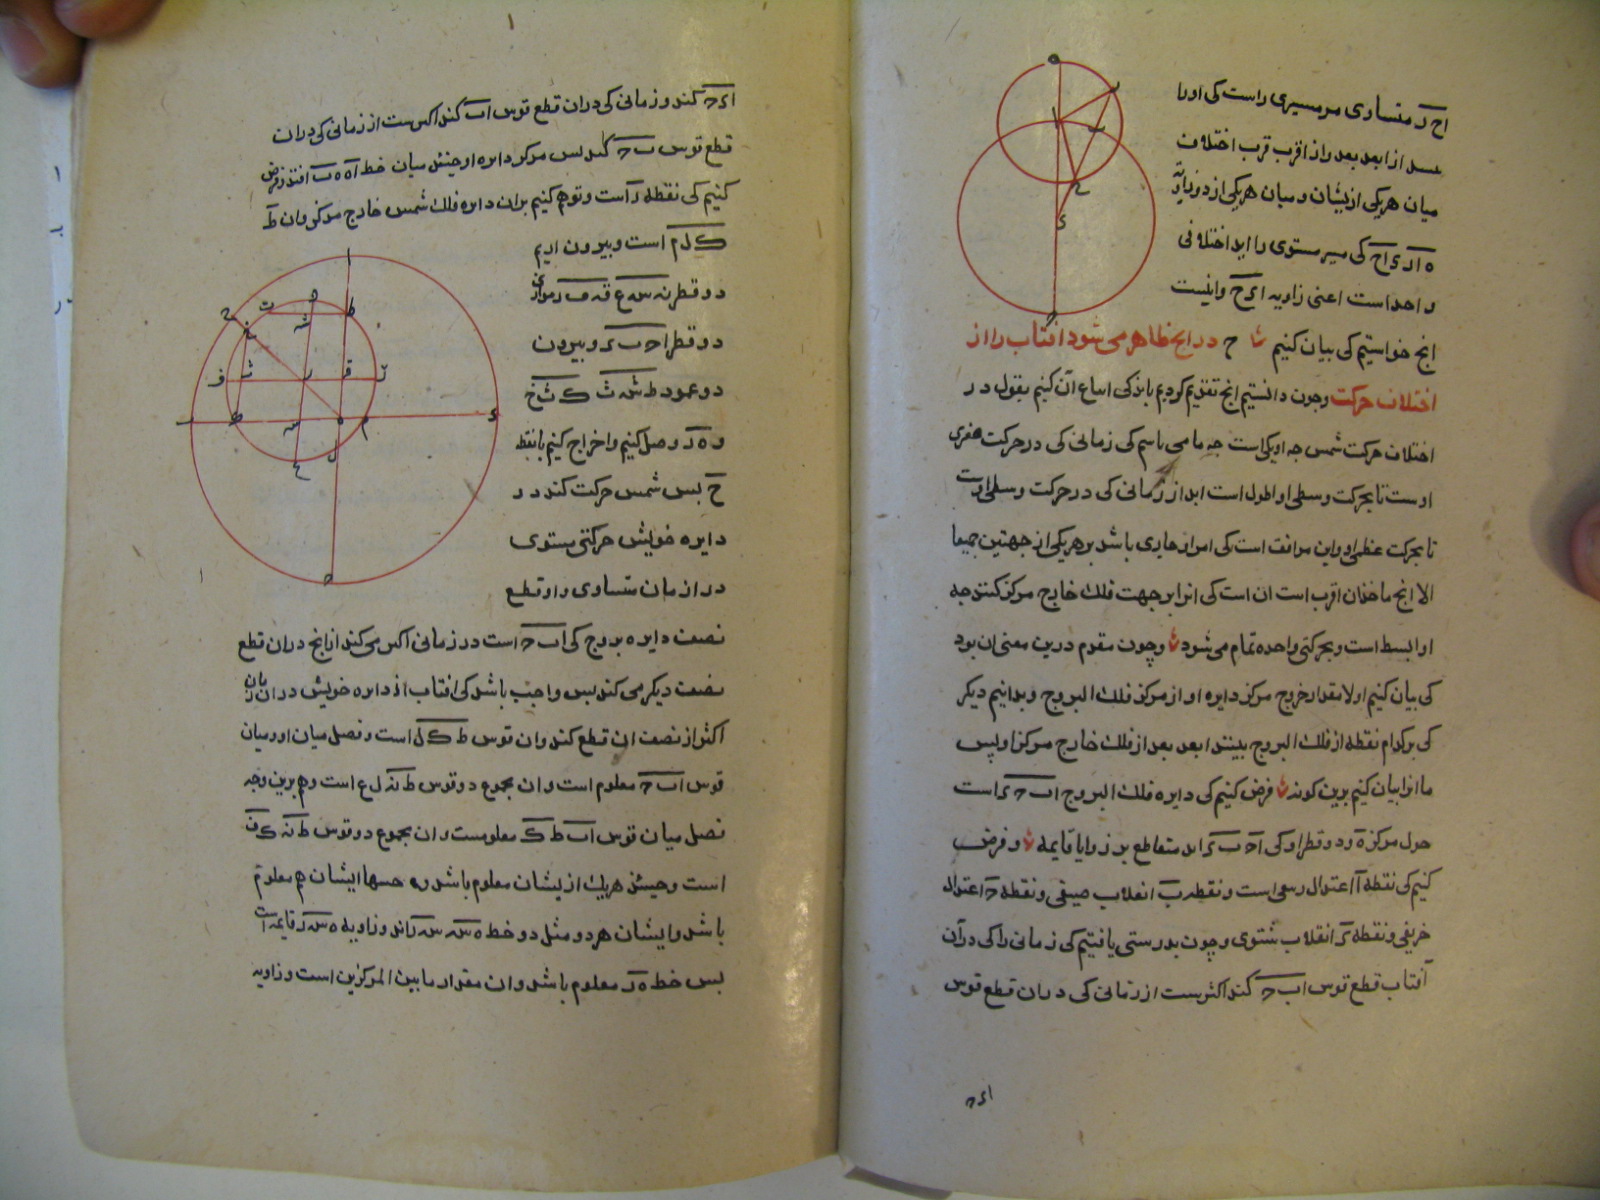 اح ر متساوی مر مسیری راست کی اورا
ابعد بعد را از اقرب قرب اختلاف
میان هر یکی ازیشان و میان هر یکی از دو زاویه
ه ا ر ی ا ح کی سیر مستوی را اند اختلافی
واحد است اعنی زاویه ا ی ح و اینست
انچ خواستیم کی بیان کنیم ح در انچ ظاهر می شود افتاب را از
اختلاف حرکت وچون دانستیم انچ تقدیم کردیم باید کی اتباع آن کنیم بقول در
اختلاف حرکت شمس چه او یکی است چه مامی یابیم کی زمانی کی در حرکت صغری
اوست تا بحرکت وسطی او اطول است ابدا از زمانی کی در حرکت وسطی اوست
تا بحرکت عظمی او واین موافق است کی امر او جاری باشد بر هر یکی از جهتین جمیعا
الا انچ ما خذان اقرب است ان است کی انرا بر جهت فلک خارج مرکز کنند چه
او ابسط است وبحرکتی واحده تمام می شود وچون مقوم درین معنی ان بود
کی بیان کنیم اولا مقدار خروج مرکز دایره او از مرکز فلک البروج وبدانیم دیکر
کی برکدام نقطه از فلک البروج بینند ابعد بعد از فلک خارج مرکز او پس
ما انرا بیان کنیم برین کونه فرض کنیم کی دایره فلک البروج ا ب ح ی است
حول مرکز ه و دو قطر او کی ا ح ب ی اند متقاطع بر زوایا قایمه و فرض
کنیم کی نقطه ا اعتدال ربیعی است ونقطه ب انقلاب صیفی ونقطه ح اعتدال
خریفی ونقطه ی انقلاب شتوی وچون بدرستی یافتیم کی زمانی را کی دران
آفتاب قطع قوس ا ب ح کند اکثرست از زمانی کی دران قطع قوس
ا ی ح
ا ی ح کند و زمانی کی دران قطع قوس ا ب کند اکبرست از زمانی کی دران
قطع قوس ب ح کند پس مرکز دایره او حینئذ میان خط ا ه ه ب افتد وفرض
کنیم کی نقطه ر است وتوهم کنیم بران دایره فلک شمس خارج مرکز وان ط
ک ل م است وبیرون اریم
دو قطر ن س ع ق ف ر موازی
دو قطر ا ح ب ی وبیرون
دو عمود ط ش ت ک ث خ
و ه ر وصل کنیم واخراج کنیم بانقطه
خ پس شمس حرکت کند در
دایره خویش حرکتی مستوی
در ازمان متساوی واو قطع
نصف دایره بروج کی ا ب ح است در زمانی اکبر می کند از انچ دران قطع
نصف دیکر می کند پس واجب باشد کی افتاب از دایره خویش دران زمان
اکثر از نصف ان قطع کند وان قوس ط ک ل است وفصل میان او ومیان
قوس ا ب ح معلوم است وان مجموع دو قوس ط ن ل ع است وهم برین وجه
فصل میان قوس ا ب ط ک معلومست وان مجموع دو قوس ط ن ک ف
است وحینئذ هر یک ازیشان معلوم باشد وجیبها ایشان هم معلوم
باشد وایشان هر دو مثل دو خط ه س س ر اند وزاویه ه س ر قایمه است
پس خط ه ر معلوم باشد وان مقدار مابین المرکزین است وزاویه